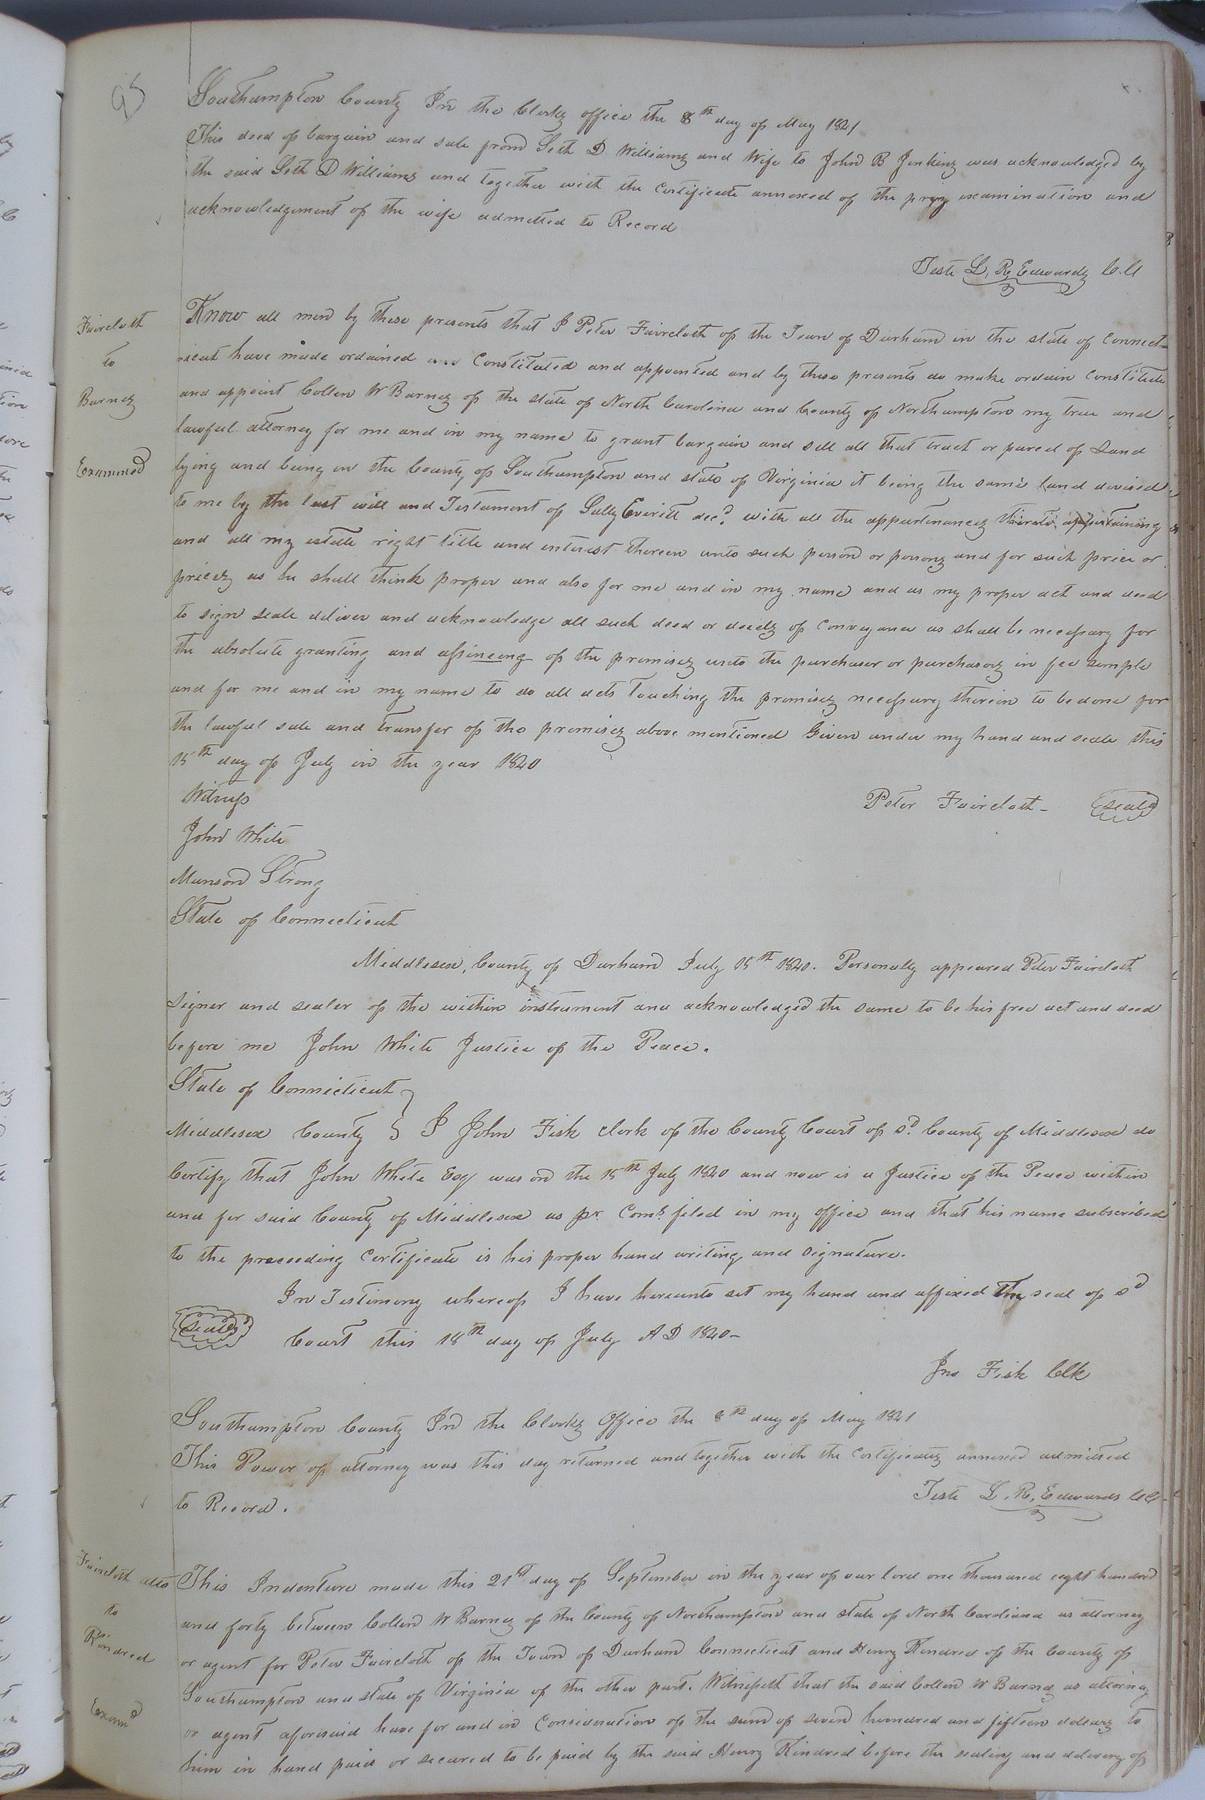 95
Southampton County In the Clerks office the 8th day of May 1841
This deed of bargain and sale from Seth D Williams and Wife to John B Jenkins was acknowledged by
the said Seth D Williams and together with the Certificate annexed of the privy examination and
acknowledgement of the wife admitted to Record
Teste L. R. Edwards C.C
Faircloth
to
Barnes
Examined
Know all men by these presents that I Peter Faircloth of the Town of Durham in the state of Connect-
icut have made ordained and Constituted and appointed and by these presents do make ordain Constitute
and appoint Collen W Barnes of the state of North Carolina and County of Northampton my true and
lawful attorney for me and in my name to grant bargain and sell all that tract or parcel of Land
lying and being in the County of Southampton and state of Virginia it being the same land devised
to me by the last will and Testament of Sally Everitt decd. with all the appurtenances thereto appertaining
and all my estate right title and interest therein unto such person or persons and for such price or
prices as he shall think proper and also for me and in my name and as my proper act and deed
to sign seale deliver and acknowledge all such deed or deeds of Conveyance as shall be necessary for
the absolute granting and assineing of the premises unto the purchaser or purchasers in fee simple
and for me and in my name to do all acts Touching the premises necessary therein to be done for
the lawful sale and transfer of the premises above mentioned Given under my hand and seale this
15th day of July in the year 1840
Witness
Peter Faircloth- seale
John White
Munson Strong
State of Connecticut
Middlesex, County of Durham July 15th 1840. Personally appeared Peter Faircloth
signer and sealer of the within instrument and acknowledged the same to be his free act and deed
before me John White Justice of the Peace.
State of Connecticut }
Middlesex County } I John Fisk Clerk of the County Court of sd. County of Middlesex do
Certify that John White Esq was on the 15th July 1840 and now is a Justice of the Peace within
and for said County of Middlesex as pr. Coms. filed in my office and that his name subscribed
to the preceeding Certificate is his proper hand writing and signature.
In Testimony whereof I have hereunto set my hand and affixed the seal of sd
seale
Court this 18th day of July A D 1840-
Jno Fisk Clk
Southampton County In the Clerks Office the 8th day of May 1841
This Power of attorney was this day returned and together with the Certificates annexed admitted
to Record.
Teste L. R. Edwards C.C.
Faircloth atto
to
Kindred
Examd
This Indenture made this 21st day of September in the year of our lord one thousand eight hundred
and forty between Collen W Barnes of the County of Northampton and state of North Carolina as attorney
or agent for Peter Faircloth of the Town of Durham Connecticut and Henry Kindred of the County of
Southampton and state of Virginia of the other part. Witnesseth that the said Collen W Barnes as attorney
or agent aforesaid have for and in Consideration of the sum of seven hundred and fifteen dollars to
him in hand paid or secured to be paid by the said Henry Kindred before the sealing and delivery of